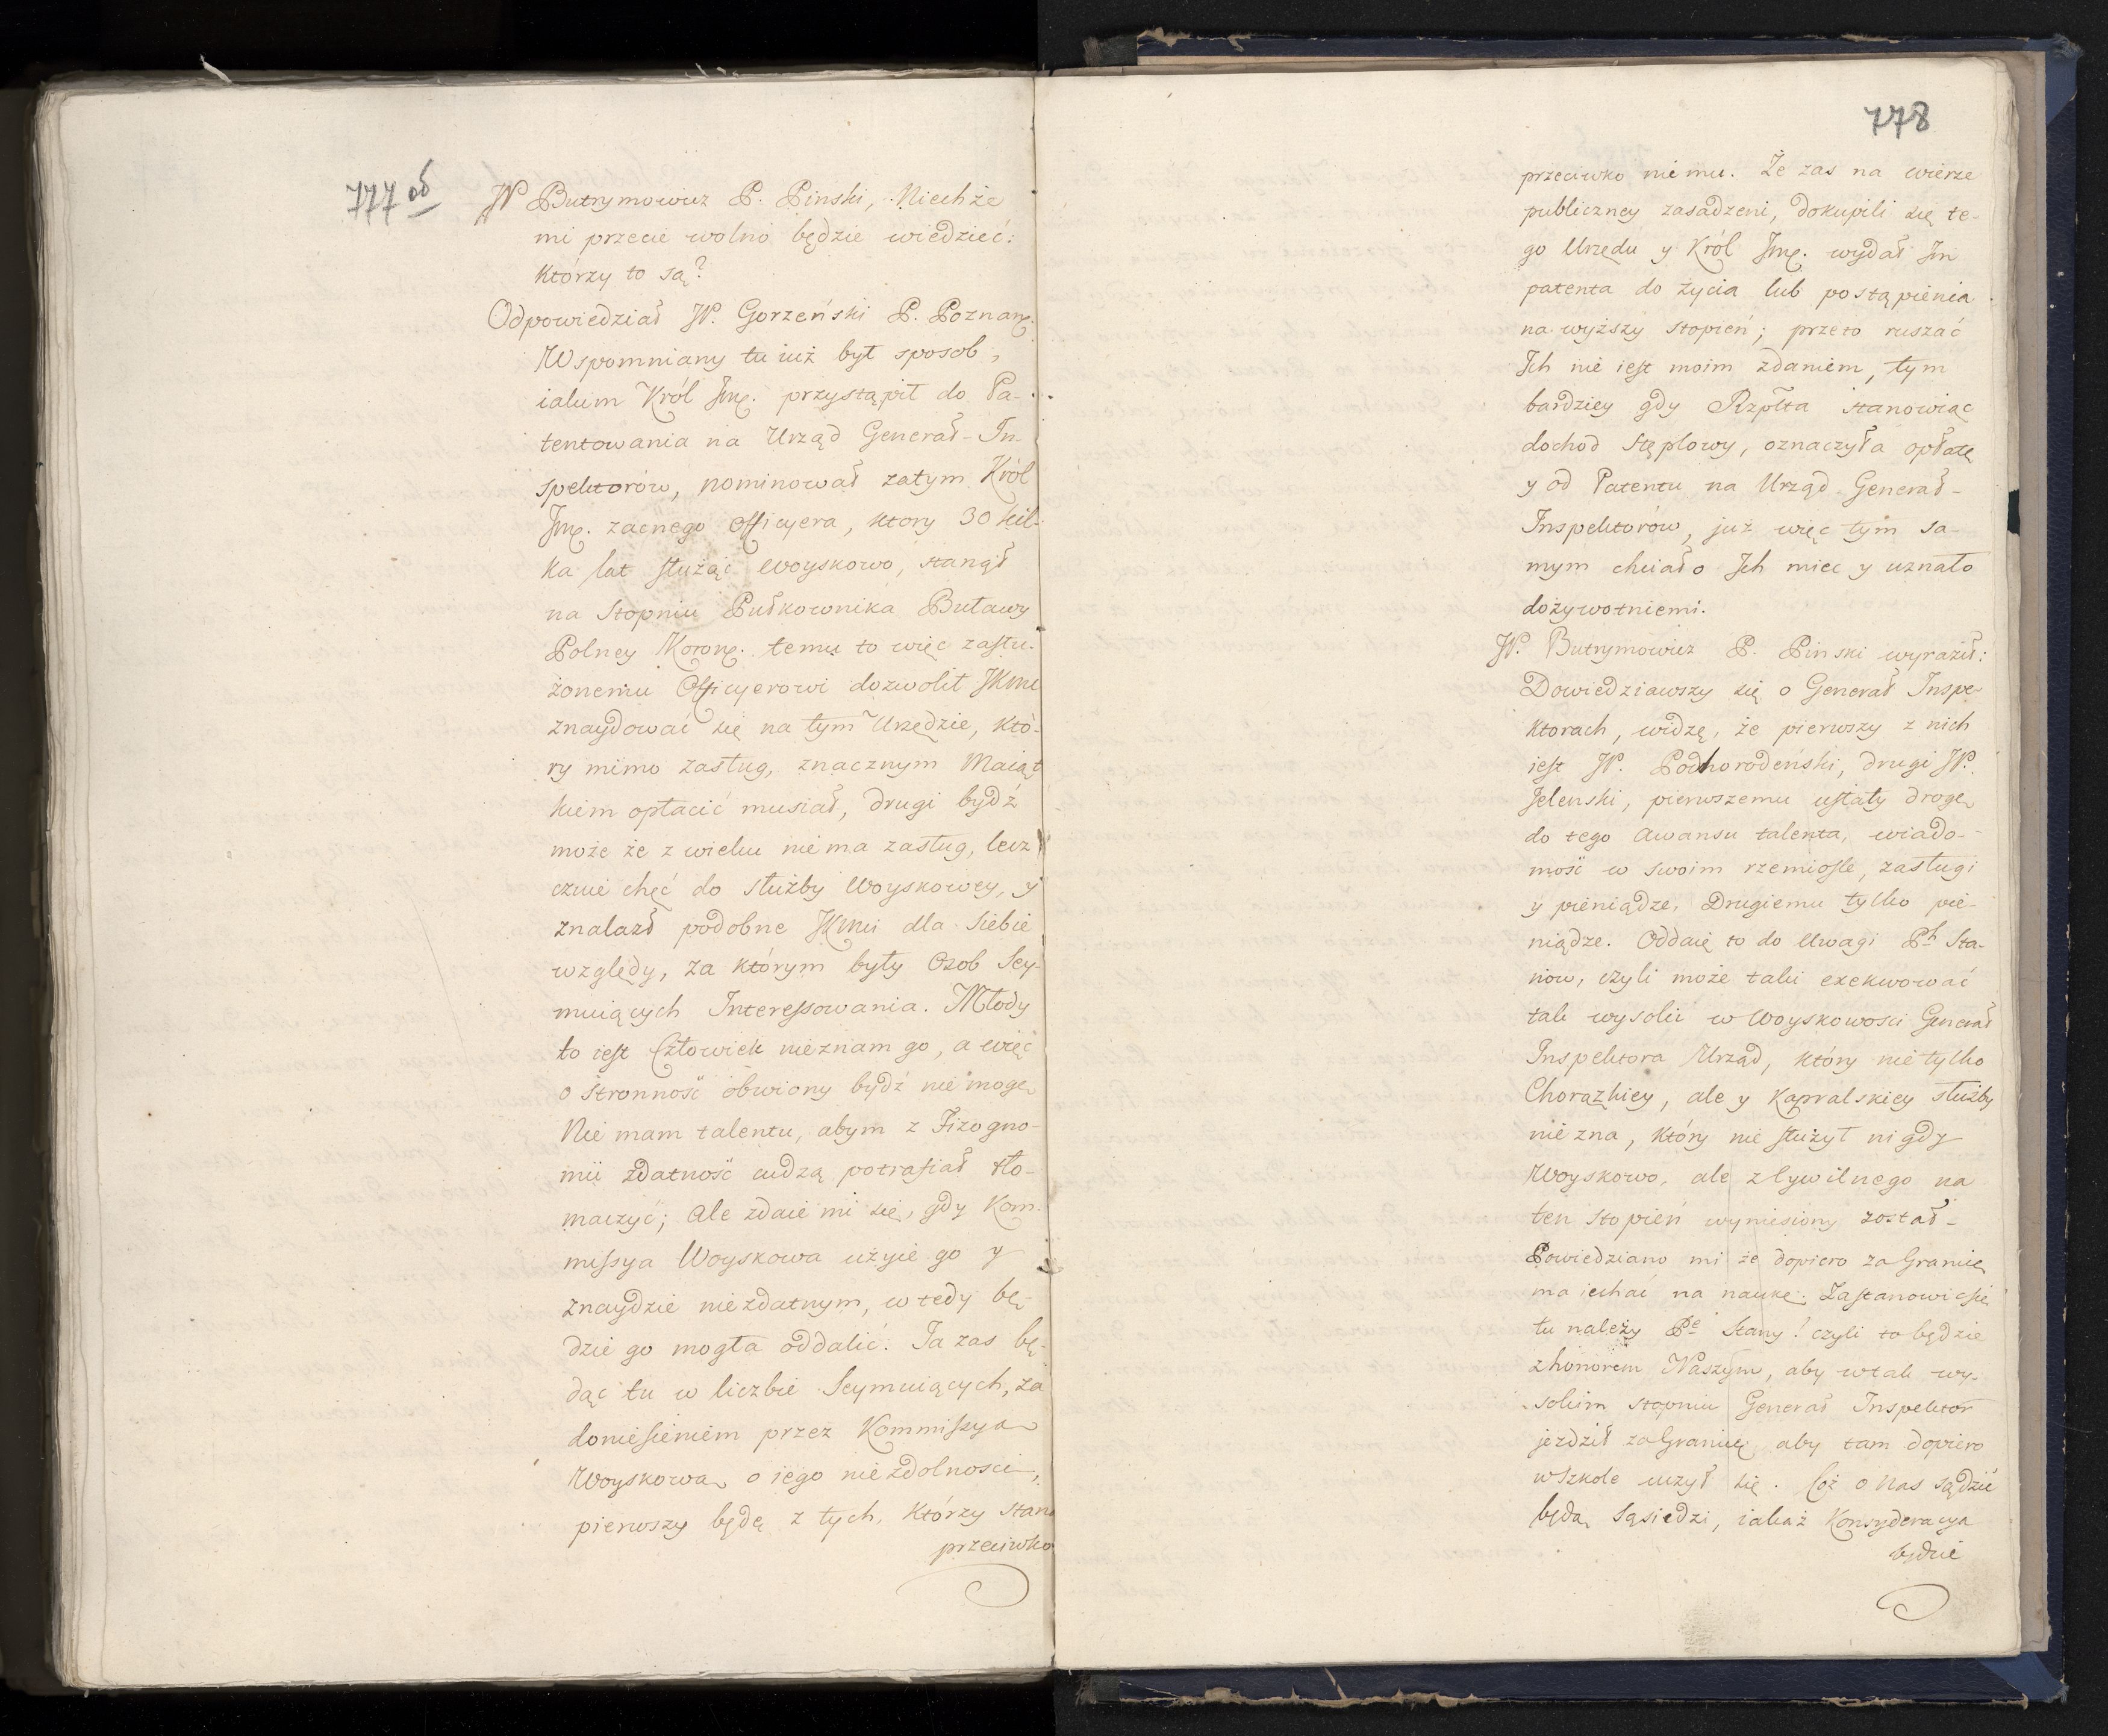 777 ob
JW Butrymowicz P. Pinski, Niechże
mi przecie wolno będzie wiedzieć:
którzy to są?
Odpowiedział JW. Gorzeński P. Poznań.
Wspomniany tu iuż był sposob,
iakim Król Jmć. przystąpił do Pa-
tentowania na Urząd Generał-In-
spektorów, nominował zatym Król
Jmć. zacnego Officyera, ktory 30 kil-
ka lat służąc Woyskowo, stanął
na Stopniu Pułkownika Buławy
Polney Koron. temu to więc zasłu-
żonemu Officyerowi dozwolił JKMć
znaydować się na tym Urzędzie, któ-
ry mimo zasług, znacznym Maiąt
kiem opłacić musiał, drugi bydź
może że z wieku nie ma zasług, lecz
czuie chęć do służby Woyskowey, y
znalazł podobne JKMci dla siebie
względy, za którym były Osob Sey-
muiących Interessowania. Młody
to iest Człowiek nieznam go, a więc
o stronność obwiony bydź nie mogę
Nie mam talentu, abym z Fizogno-
mii zdatność cudzą potrafiał tło-
maczyć; ale zdaie mi się, gdy Kom-
missya Woyskowa użyie go y
znaydzie niezdatnym, wtedy bę-
dzie go mogła oddalić. Ja zas bę-
dąc tu w liczbie Seymuiących, za
doniesieniem przez Kommissyą
Woyskową o iego niezdolnosci,
pierwszy będę z tych, którzy staną
przeciwko
778
przeciwko niemu. Że zas na wierze
publiczney zasadzeni, dokupili się te-
go Urzędu y Król Jmć. wydał Im
patenta do życia lub postąpienia
na wyższy stopień; przeto ruszać
Ich nie iest moim zdaniem, tym
bardziey gdy Rzplta stanowiąc
dochod Stęplowy, oznaczyła opłatę
y od Patentu na Urząd Generał-
Inspektorów, już więc tym sa-
mym chciało Ich miec y uznało
dożywotniemi.
JW. Butrymowicz P. Pinski wyraził:
Dowiedziawszy się o Generał Inspe-
ktorach, widzę, że pierwszy z nich
iest JW. Podhorodeński, drugi JW.
Jelenski, pierwszemu usłały drogę
do tego Awansu talenta, wiado-
mość w swoim rzemiosle, zasługi
y pieniądze, Drugiemu tylko pie-
niądze. Oddaię to do Uwagi Pch Sta-
now, czyli może taki exekwować
tak wysoki w Woyskowosci Generał
Inspektora Urząd, który nie tylko
Chorązkiey, ale y Kapralskiey służby
nie zna, który nie służył nigdy
Woyskowo, ale z Cywilnego na
ten stopień wyniesiony został-
Powiedziano mi że dopiero za Granicę
ma iechać na naukę. Zastanowić się
tu należy Pe Stany! czyli to będzie
z honorem Naszym, aby w tak wy-
sokim stopniu Generał Inspektor
jezdził za Granicę, aby tam dopiero
w Szkole uczył się. Coż o Nas sądzić
będą Sąsiedzi, iakaż Konsyderacya
będzie